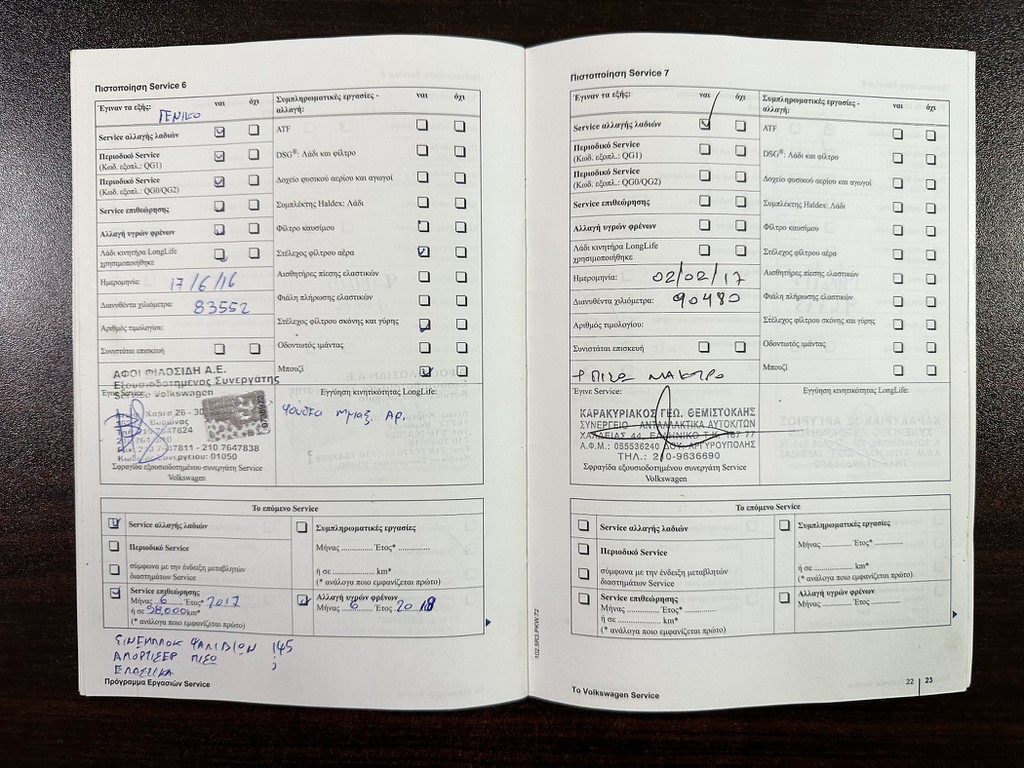 Πιστοποίηση Service 6
Έγιναν τα εξής: ναι όχι
ΓΕΝΙΚΟ
Service αλλαγής λαδιών
Περιοδικό Service
(Κωδ. εξοπλ.: QG1)
Περιοδικό Service
(Κωδ. εξοπλ.: QG0/QG2)
Service επιθεώρησης
Αλλαγή υγρών φρένων
Λάδι κινητήρα LongLife
χρησιμοποιήθηκε
Ημερομηνία: 17/6/16
Διανυθέντα χιλιόμετρα: 83552
Αριθμός τιμολογίου:
Συνιστάται επισκευή
Συμπληρωματικές εργασίες - ναι όχι
αλλαγή:
ATF
DSG®: Λάδι και φίλτρο
Δοχείο φυσικού αερίου και αγωγοί
Συμπλέκτης Haldex: Λάδι
Φίλτρο καυσίμου
Στέλεχος φίλτρου αέρα
Αισθητήρες πίεσης ελαστικών
Φιάλη πλήρωσης ελαστικών
Στέλεχος φίλτρου σκόνης και γύρης
Οδοντωτός ιμάντας
Μπουζί
ΑΦΟΙ ΦΙΛΟΣΙΔΗ Α.Ε.
Εξουσιοδοτημένος Συνεργάτης
Service Volkswagen
210 7647811 - 210 7647838
Κωδ. Συνεργείου: 01050
Σφραγίδα εξουσιοδοτημένου συνεργάτη Service
Volkswagen
Εγγύηση κινητικότητας LongLife:
Το επόμενο Service
Service αλλαγής λαδιών
Περιοδικό Service
σύμφωνα με την ένδειξη μεταβλητών
διαστημάτων Service
Service επιθεώρησης
Μήνας 6 Έτος* 2017
ή σε 98.000 km*
(* ανάλογα ποιο εμφανίζεται πρώτο)
Συμπληρωματικές εργασίες
Μήνας .............. Έτος* ..............
ή σε .................... km*
(* ανάλογα ποιο εμφανίζεται πρώτο)
Αλλαγή υγρών φρένων
Μήνας 6 Έτος 2018
ΣΙΝΕΜΠΛΟΚ ΨΑΛΙΔΙΩΝ 145
ΑΜΟΡΤΙΣΕΡ ΠΙΣΩ ;
ΕΛΑΣΤΙΚΑ
Πρόγραμμα Εργασιών Service
Πιστοποίηση Service 7
Έγιναν τα εξής: ναι όχι
Service αλλαγής λαδιών
Περιοδικό Service
(Κωδ. εξοπλ.: QG1)
Περιοδικό Service
(Κωδ. εξοπλ.: QG0/QG2)
Service επιθεώρησης
Αλλαγή υγρών φρένων
Λάδι κινητήρα LongLife
χρησιμοποιήθηκε
Ημερομηνία: 02/02/17
Διανυθέντα χιλιόμετρα: 90480
Αριθμός τιμολογίου:
Συνιστάται επισκευή
Συμπληρωματικές εργασίες - ναι όχι
αλλαγή:
ATF
DSG®: Λάδι και φίλτρο
Δοχείο φυσικού αερίου και αγωγοί
Συμπλέκτης Haldex: Λάδι
Φίλτρο καυσίμου
Στέλεχος φίλτρου αέρα
Αισθητήρες πίεσης ελαστικών
Φιάλη πλήρωσης ελαστικών
Στέλεχος φίλτρου σκόνης και γύρης
Οδοντωτός ιμάντας
Μπουζί
Έγινε Service:
ΚΑΡΑΚΥΡΙΑΚΟΣ ΓΕΩ. ΘΕΜΙΣΤΟΚΛΗΣ
ΣΥΝΕΡΓΕΙΟ - ΑΝΤΑΛΛΑΚΤΙΚΑ ΑΥΤΟΚ/ΤΩΝ
ΧΑΛΔΕΙΑΣ 44, ΕΛΛΗΝΙΚΟ Τ.Κ. 167 77
Α.Φ.Μ.: 055536240 ΔΟΥ ΑΡΓΥΡΟΥΠΟΛΗΣ
ΤΗΛ.: 210-9636690
Σφραγίδα εξουσιοδοτημένου συνεργάτη Service
Volkswagen
Εγγύηση κινητικότητας LongLife:
Το επόμενο Service
Service αλλαγής λαδιών
Περιοδικό Service
σύμφωνα με την ένδειξη μεταβλητών
διαστημάτων Service
Service επιθεώρησης
Μήνας .............. Έτος* ..............
ή σε .................... km*
(* ανάλογα ποιο εμφανίζεται πρώτο)
Συμπληρωματικές εργασίες
Μήνας .............. Έτος* ..............
ή σε .................... km*
(* ανάλογα ποιο εμφανίζεται πρώτο)
Αλλαγή υγρών φρένων
Μήνας .............. Έτος ..............
102.5R3.PKW.72
Το Volkswagen Service
22 | 23